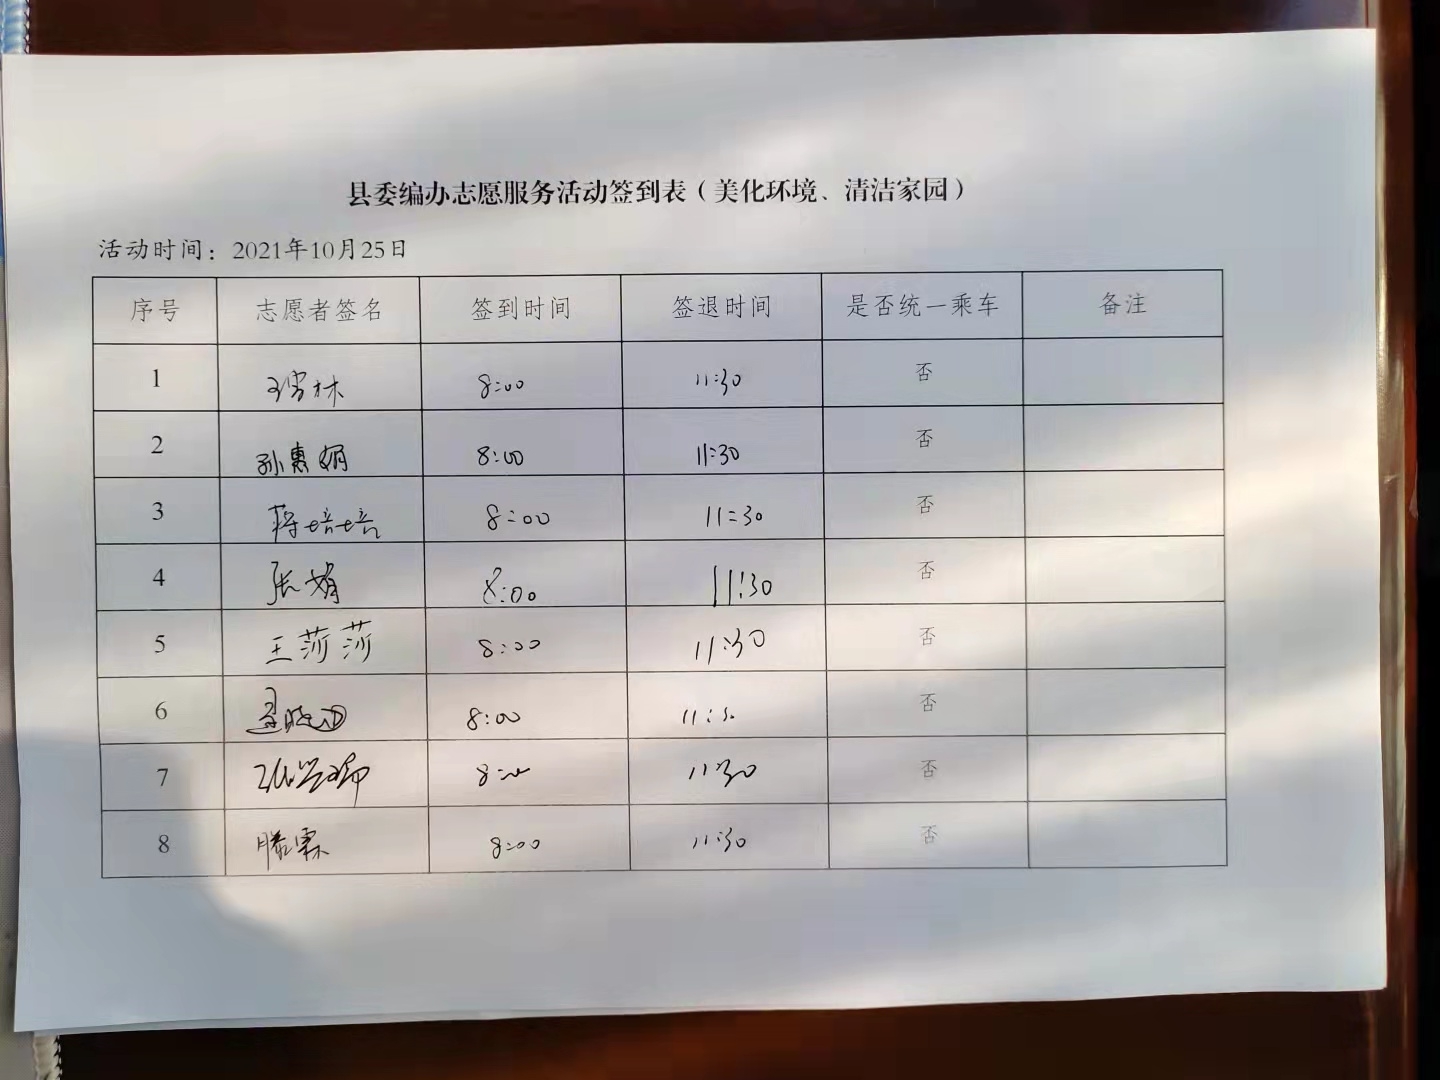 县委编办志愿服务活动签到表（美化环境、清洁家园）
活动时间：2021年10月25日
序号 志愿者签名 签到时间 签退时间 是否统一乘车 备注
1 8:00 11:30 否
2 孙惠娟 8:00 11:30 否
3 蒋培培 8:00 11:30 否
4 张娟 8:00 11:30 否
5 王莎莎 8:00 11:30 否
6 8:00 11:30 否
7 8:00 11:30 否
8 滕霖 8:00 11:30 否